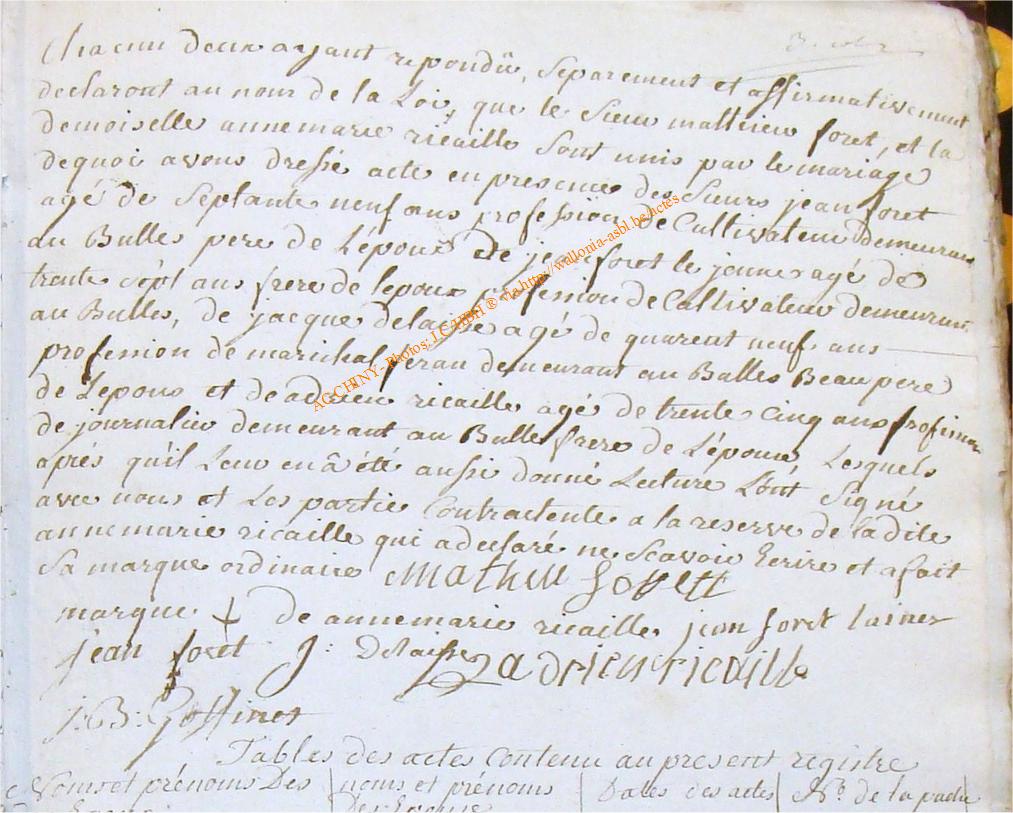 Chacun deux ayant repondû, Separement et affirmativement
declaront au nom de la Loi, que le Sieur matthieu foret, et la
demoiselle annemarie ricaille Sont unis par le mariage
dequoi avons dressé acte en presence des Sieurs jean foret
agé de Septante neuf ans profession de Cultivateur demeurant
au Bulles pere de L'époux de jean foret le jeune agé de
trente Sept ans frere de lepoux profession de Cultivateur demeurant
au Bulles, de jacque delaisse agé de quarent neuf ans
profession de marichal feran demeurant au Bulles Beaupere
de Lepous et de adrien ricaille agé de trente Cinq ans profession
de journalier demeurant au Bulle frere de L'épouse Lesquels
aprés qu'il Leur en â été aussi donné Lecture L'ont Signé
avec nous et Les partie Contractente a la reserve de ladite
annemarie ricaille qui a declaré ne Scavoir Ecrire et a fait
Sa marque ordinaire Mathieu Forett
marque + de annemarie ricaille jean foret lainer
jean foret J: Delaisse adrien ricaille
j: B: Goffinet
Tables des actes Contenu au present registre
Noms et prénoms Des noms et prénoms Dates des actes No. de la
Des Epouse
AGCHINY - Photos: J.CARBI ® via http://wallonia-asbl.be/actes